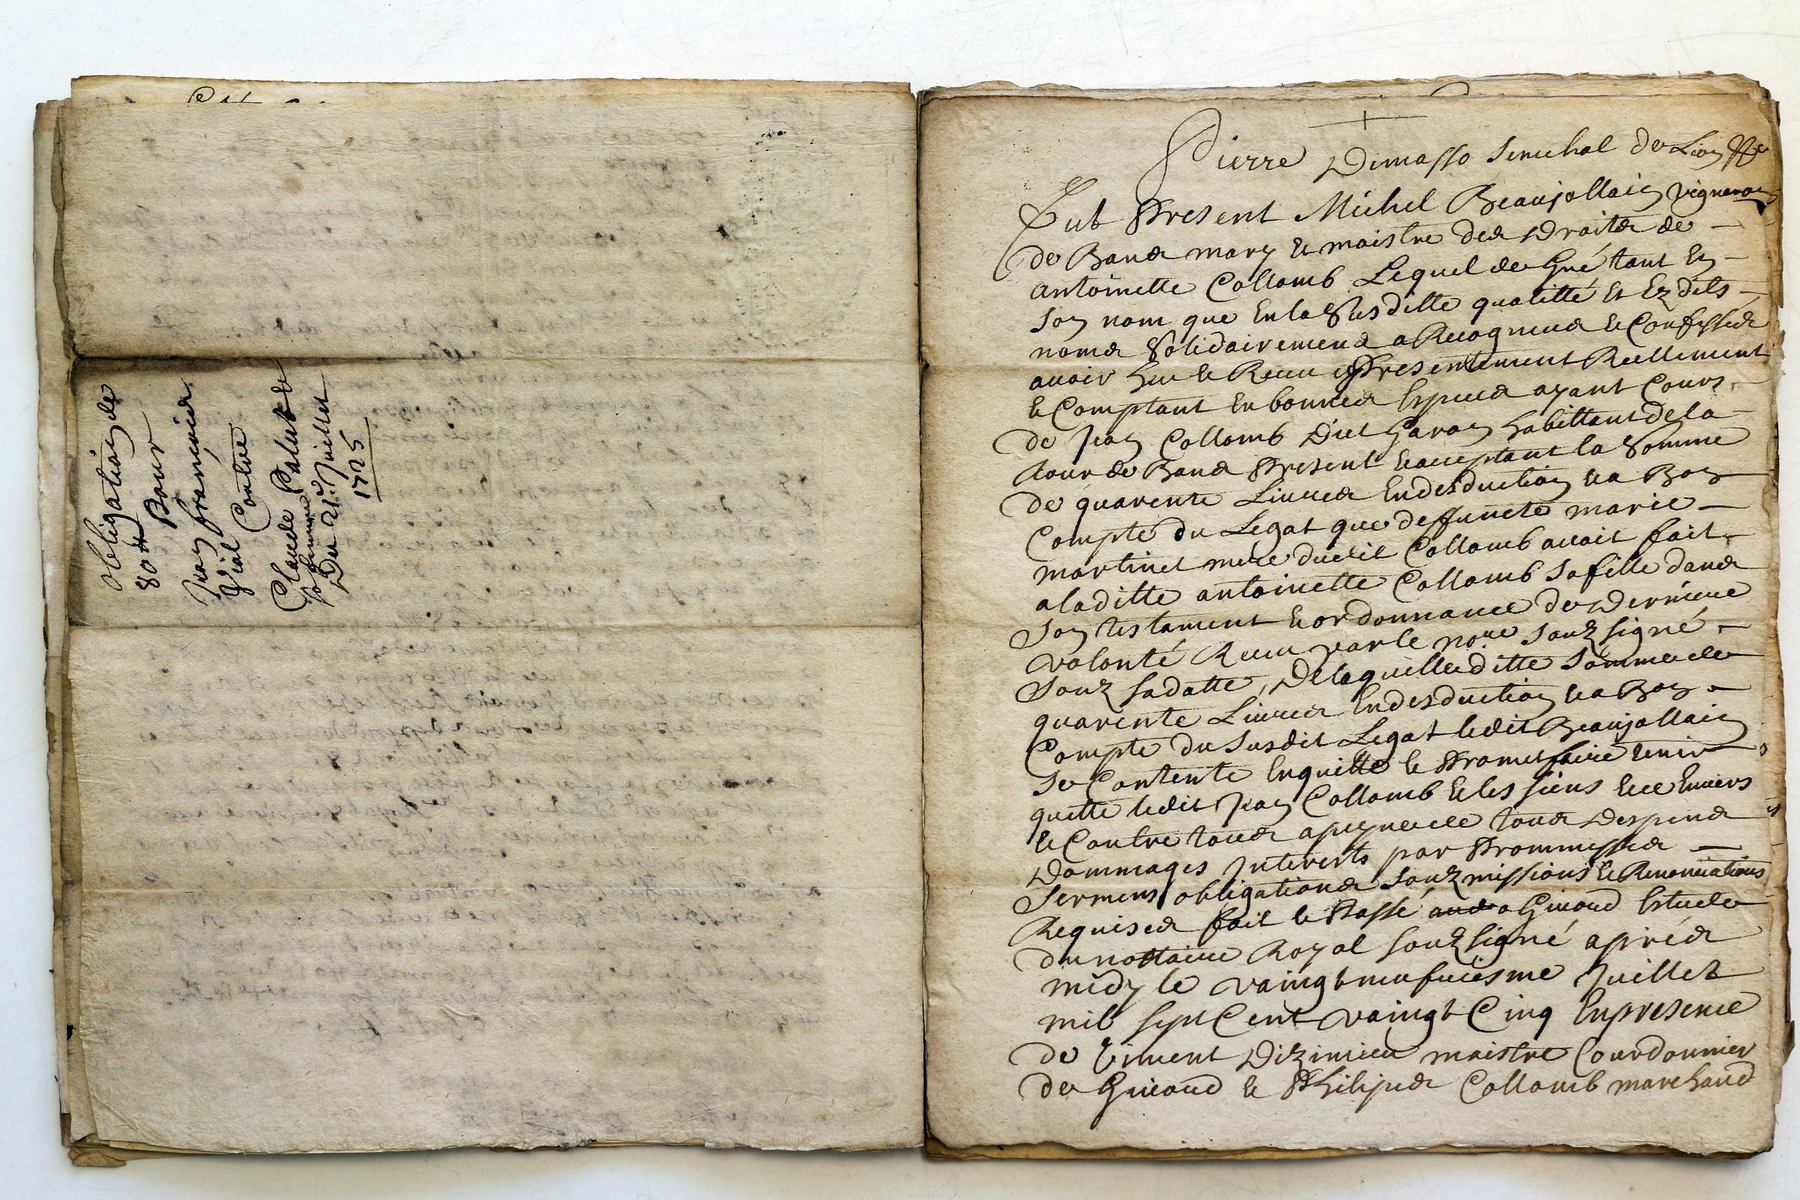 obligation de
80 ₶ Pour
Jean françois
Vial Contre
Claude Palut et
sa femme
Du 21e Juillet
1725
Pierre Dimasso Senechal de Lion &c
Fut Present Michel Beaujollain vigneron
de Bans mary et maistre des Droits de
antoinette Collomb Lequel de Gré tant En
Son nom que En la Susditte qualitté Et Ez dits
noms Solidairement a Recognus et Confessés
avoir heu et Receu Presentement Reellement
et Comptant En bonnes Especes ayant Cours
de Jean Collomb Dict habittant de la
tour de Bans Present et acceptant la Somme
de quarente Livres En desduction et a Bon
Compte du Legat que deffuncte marie
martinet mere dudit Collomb avoit fait
a laditte antoinette Collomb Sa fille dans
Son testament et ordonnance de Derniere
volonté Receu par le nore Souz signé
Souz Sa datte, De laquelle ditte Somme de
quarente Livres En desduction et a Bon
Compte du Susdit Legat ledit Beaujollain
Se Contente En quitte et Promet faire tenir
quitte ledit Jean Collomb et les siens Envers
et Contre tous a peyne de tous Despens
Dommages Interests par Prommesses
Serments obligations Souzmissions et Renonciations
Requises fait et Passé a Givord Estude
du nottaire Royal Souz signé aprés
midy le vaingt neufviesme Juillet
mil sept Cent vaingt Cinq En presence
de Viment Dizimieu maistre Courdonnier
de Givord et Philipes Collomb marchand